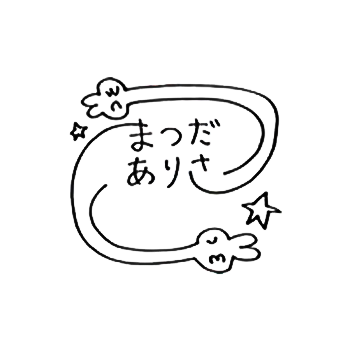 まつだ
ありさ